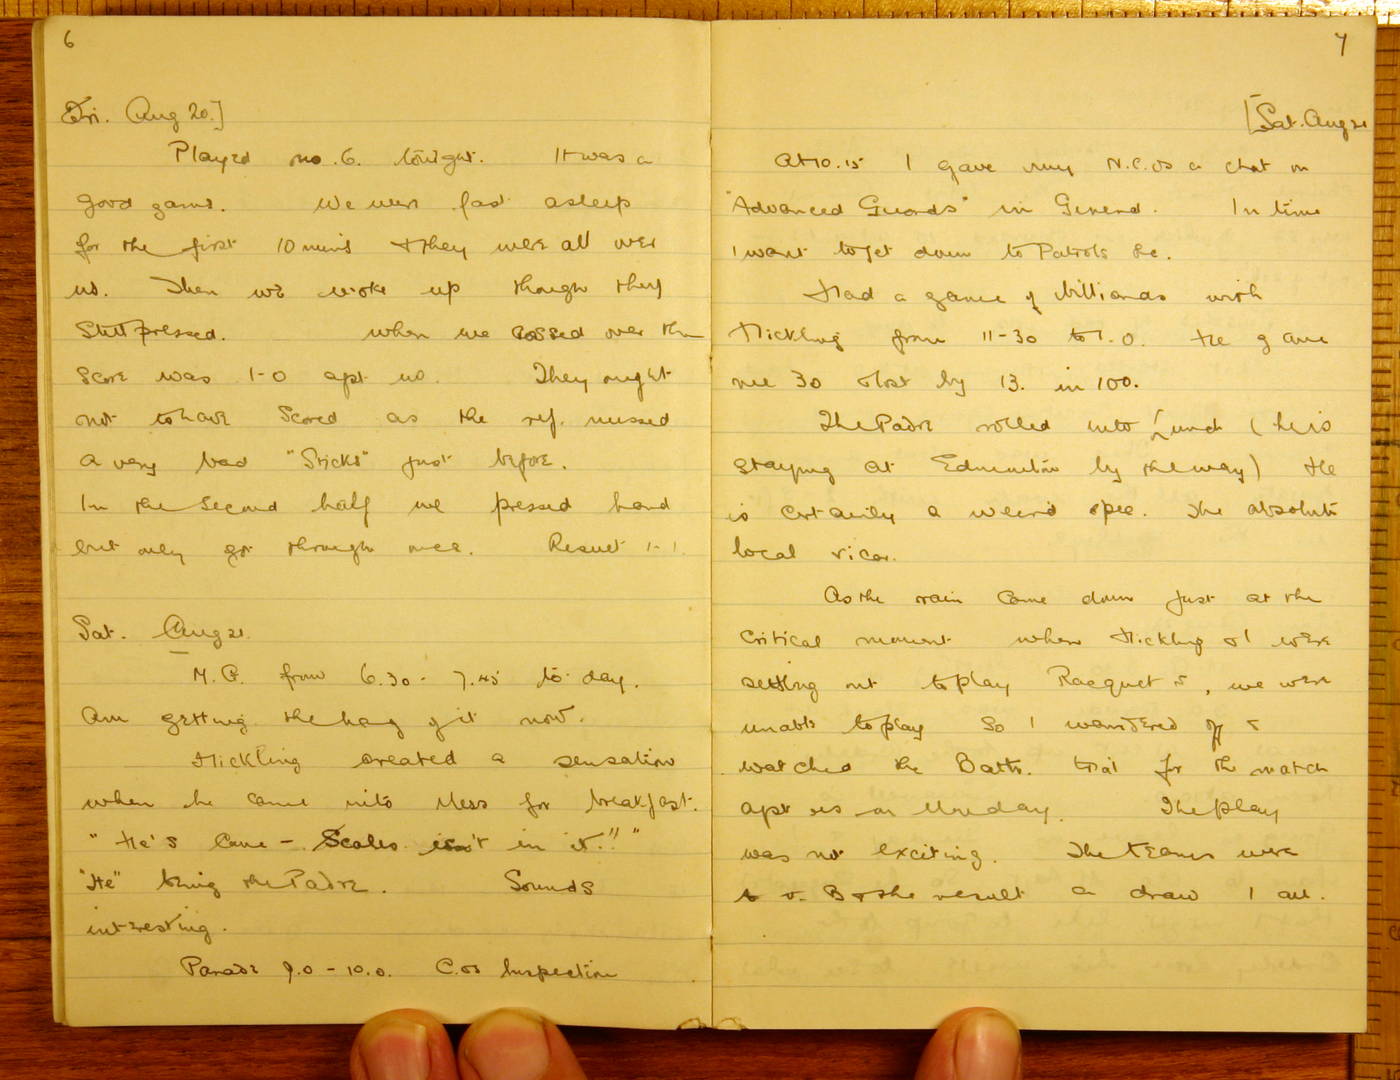 6
Fri. Aug 20.]
Played no. 6. tonight. It was a
good game. We were fast asleep
for the first 10 mins & they were all over
us. Then we woke up though they
still pressed. When we crossed over the
score was 1-0 agst us. They ought
not to have scored as the ref. missed
a very bad "Sticks" just before.
In the second half we pressed hard
but only got through once. Result 1-1.
Sat. Aug 21.
M.G. from 6.30 - 7.45 to-day.
Am getting the hang of it now.
Hickling created a sensation
when he came into Mess for breakfast.
"He's come - Scales isn't in it!!"
"He" being the Padre. Sounds
interesting.
Parade 9.0 - 10.0. C.Os Inspection
7
[Sat. Aug 21
At 10.15 I gave my N.C.Os a chat on
"Advanced Guards" in General. In time
I want to get down to Patrols &c.
Had a game of billiards with
Hickling from 11-30 to 1.0. He gave
me 30 & lost by 13. in 100.
The Padre rolled into Lunch (he is
staying at by the way) He
is certainly a weird spec. The absolute
local vicar.
As the rain came down just at the
critical moment when Hickling & I were
setting out to play Racquets, we were
unable to play so I wandered off &
watched the Battn. trial for the match
agst us on Monday. The play
was not exciting. The teams were
A v. B & the result a draw 1 all.